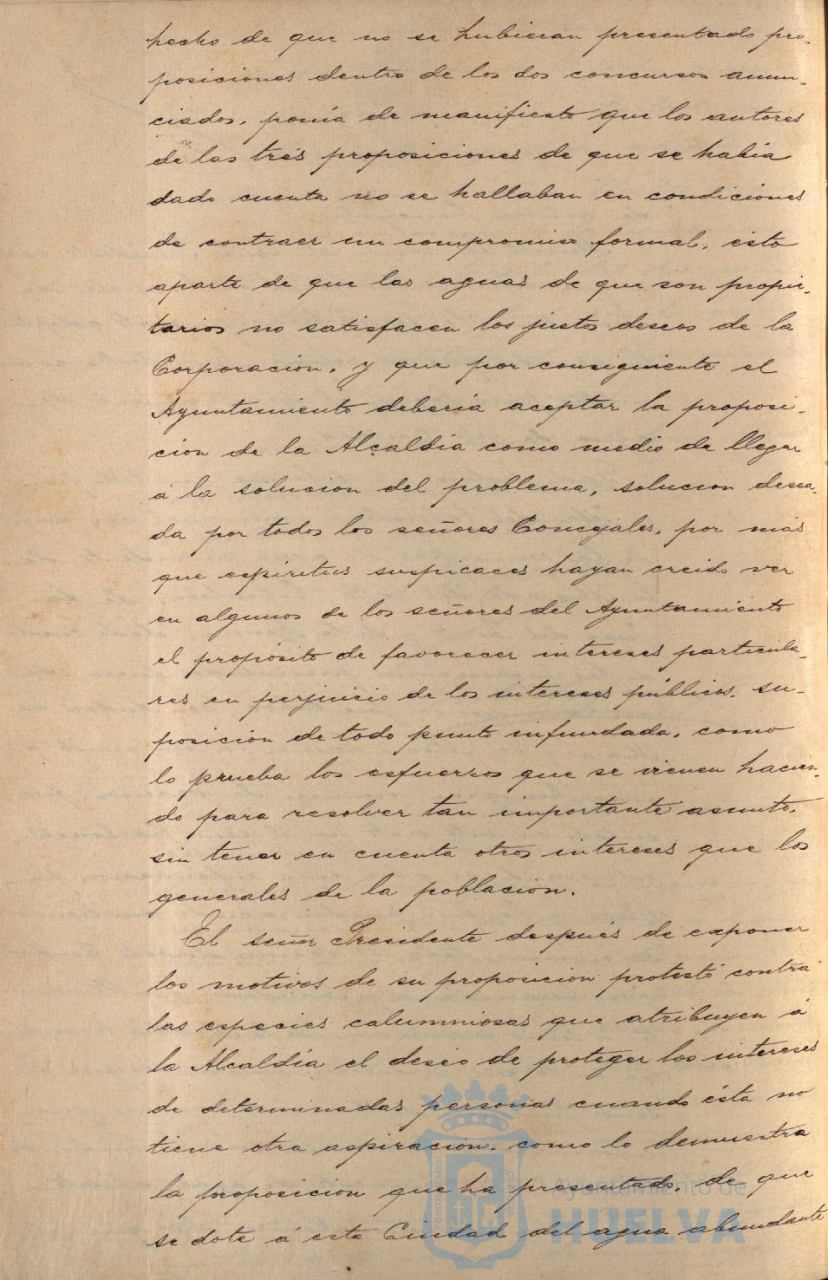 hecho de que no se hubieran presentado pro-
posiciones dentro de los dos concursos anun-
ciados, ponía de manifiesto que los autores
de las tres proposiciones de que se había
dado cuenta no se hallaban en condiciones
de contraer un compromiso formal, ésto
aparte de que las aguas de que son propie-
tarios no satisfacen los justos deseos de la
Corporación, y que por consiguiente el
Ayuntamiento debería aceptar la proposi-
ción de la Alcaldía como medio de llegar
á la solución del problema, solución desea-
da por todos los señores Concejales, por más
que espíritus suspicaces hayan creido ver
en algunos de los señores del Ayuntamiento
el propósito de favorecer intereses particula-
res en perjuicio de los intereses públicos, su-
posición de todo punto infundada, como
lo prueba los esfuerzos que se vienen hacien-
do para resolver tan importante asunto,
sin tener en cuenta otros intereses que los
generales de la población.
El señor Presidente después de exponer
los motivos de su proposición protestó contra
las especies calumniosas que atribuyen á
la Alcaldía el deseo de proteger los intereses
de determinadas personas cuando ésta no
tiene otra aspiración, como lo demuestra
la proposición que ha presentado, de que
se dote á esta Ciudad del agua abundante
Ayuntamiento de
HUELVA